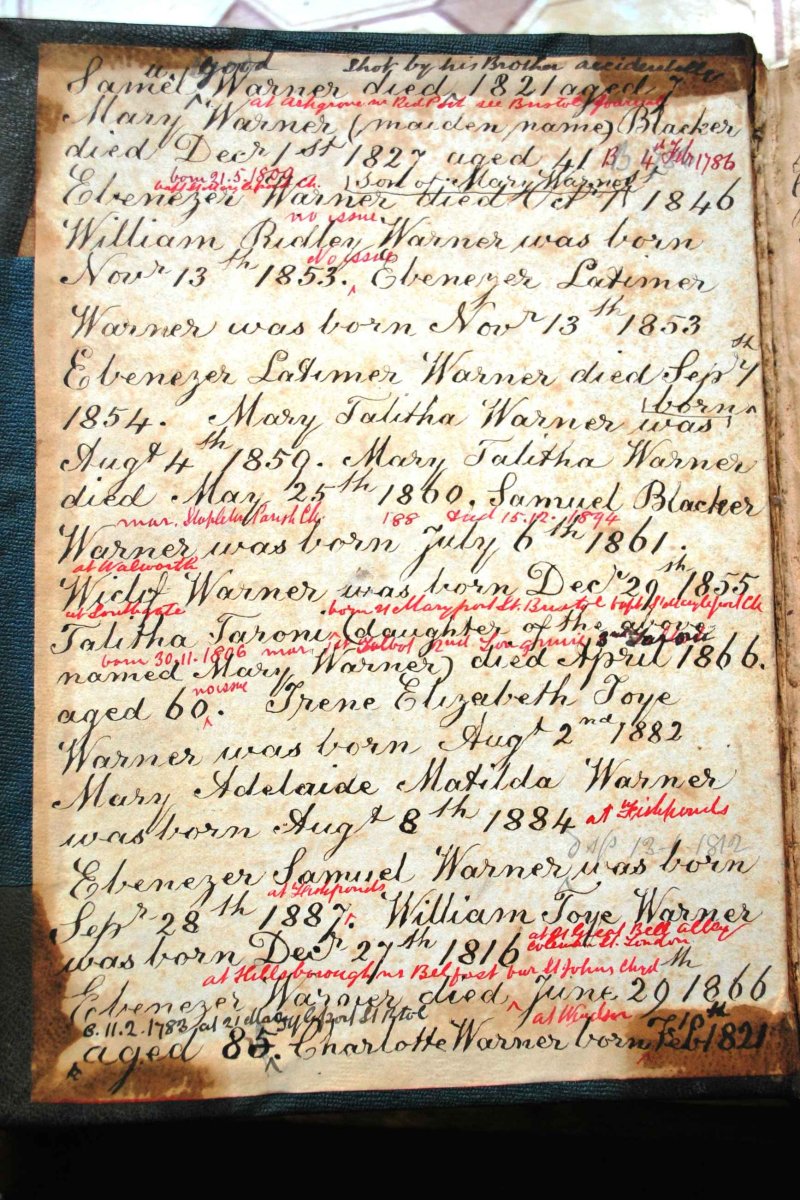 good shot by his Brother accidentally
Samel Warner died 1821 aged 7
at Ashgrove nr Red Post see Bristol Journal
Mary Warner (maiden name) Blacker
died Decr 1st 1827 aged 41 B 4th Feb 1786
born 21.5.1809
bapt St Mary le port Ch. (Son of Mary Warner)
Ebenezer Warner died Octr 1846
no issue
William Ridley Warner was born
No issue
Novr 13th 1853. Ebenezer Latimer
Warner was born Novr 13th 1853
Ebenezer Latimer Warner died Sepr 7th
born
1854. Mary Talitha Warner was
Augt 4th 1859. Mary Talitha Warner
died May 25th 1860. Samuel Blacker
mar. Stapleton Parish Ch. 188 died 15.12.1894
Warner was born July 6th 1861.
at Walworth
Wiclif Warner was born Decr 29th 1855
at Southgate born 21 Maryport St. Bristol bapt St Mary le port Ch
Talitha Taroni (daughter of the above
born 30.11.1806 mar 1st Talbot 2nd Longmire 3rd Taroni
named Mary Warner) died April 1866.
no issue
aged 60. Irene Elizabeth Toye
Warner was born Augt 2nd 1882
Mary Adelaide Matilda Warner
was born Augt 8th 1884 at Fishponds
1812
Ebenezer Samuel Warner was born
at Fishponds
Sepr 28th 1887. William Toye Warner
at Great Bell Alley
was born Decr 27th 1816 Coleman St. London
at Hillsborough nr Belfast bur St Johns Chyd
Ebenezer Warner died June 29th 1866
B. 11.2.1783 at 21 Mary le port St Btol at Windsor
aged 85. Charlotte Warner born Feb 1821